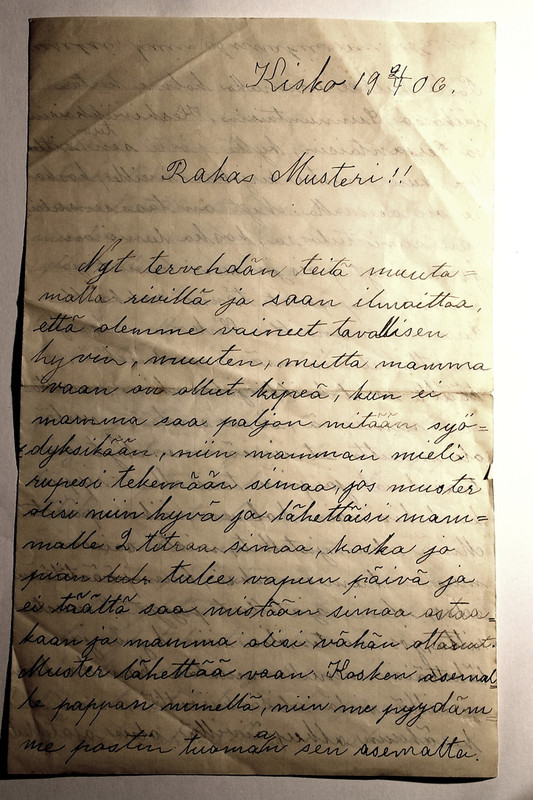 Kisko 19 9/4 06.
Rakas Musteri!!
Nyt tervehdän teitä muuta=
malla rivillä ja saan ilmoittaa,
että olemme vaineet tavallisen
hyvin, muuten, mutta mamma
vaan on ollut kipeä, kun ei
mamma saa paljon mitään syö=
dyksikään, niin mamman mieli
rupesi tekemään simaa, jos muster
olisi niin hyvä ja lähettäisi mam=
malle 2 litraa simaa, koska jo
pian tulee vapun päivä ja
ei täältä saa mistään simaa ostaa=
kaan ja mamma olisi vähän ottanut.
Muster lähettää vaan Kosken asemal=
le pappan nimellä, niin me pyydäm=
me postin tuomaan sen asemalta.